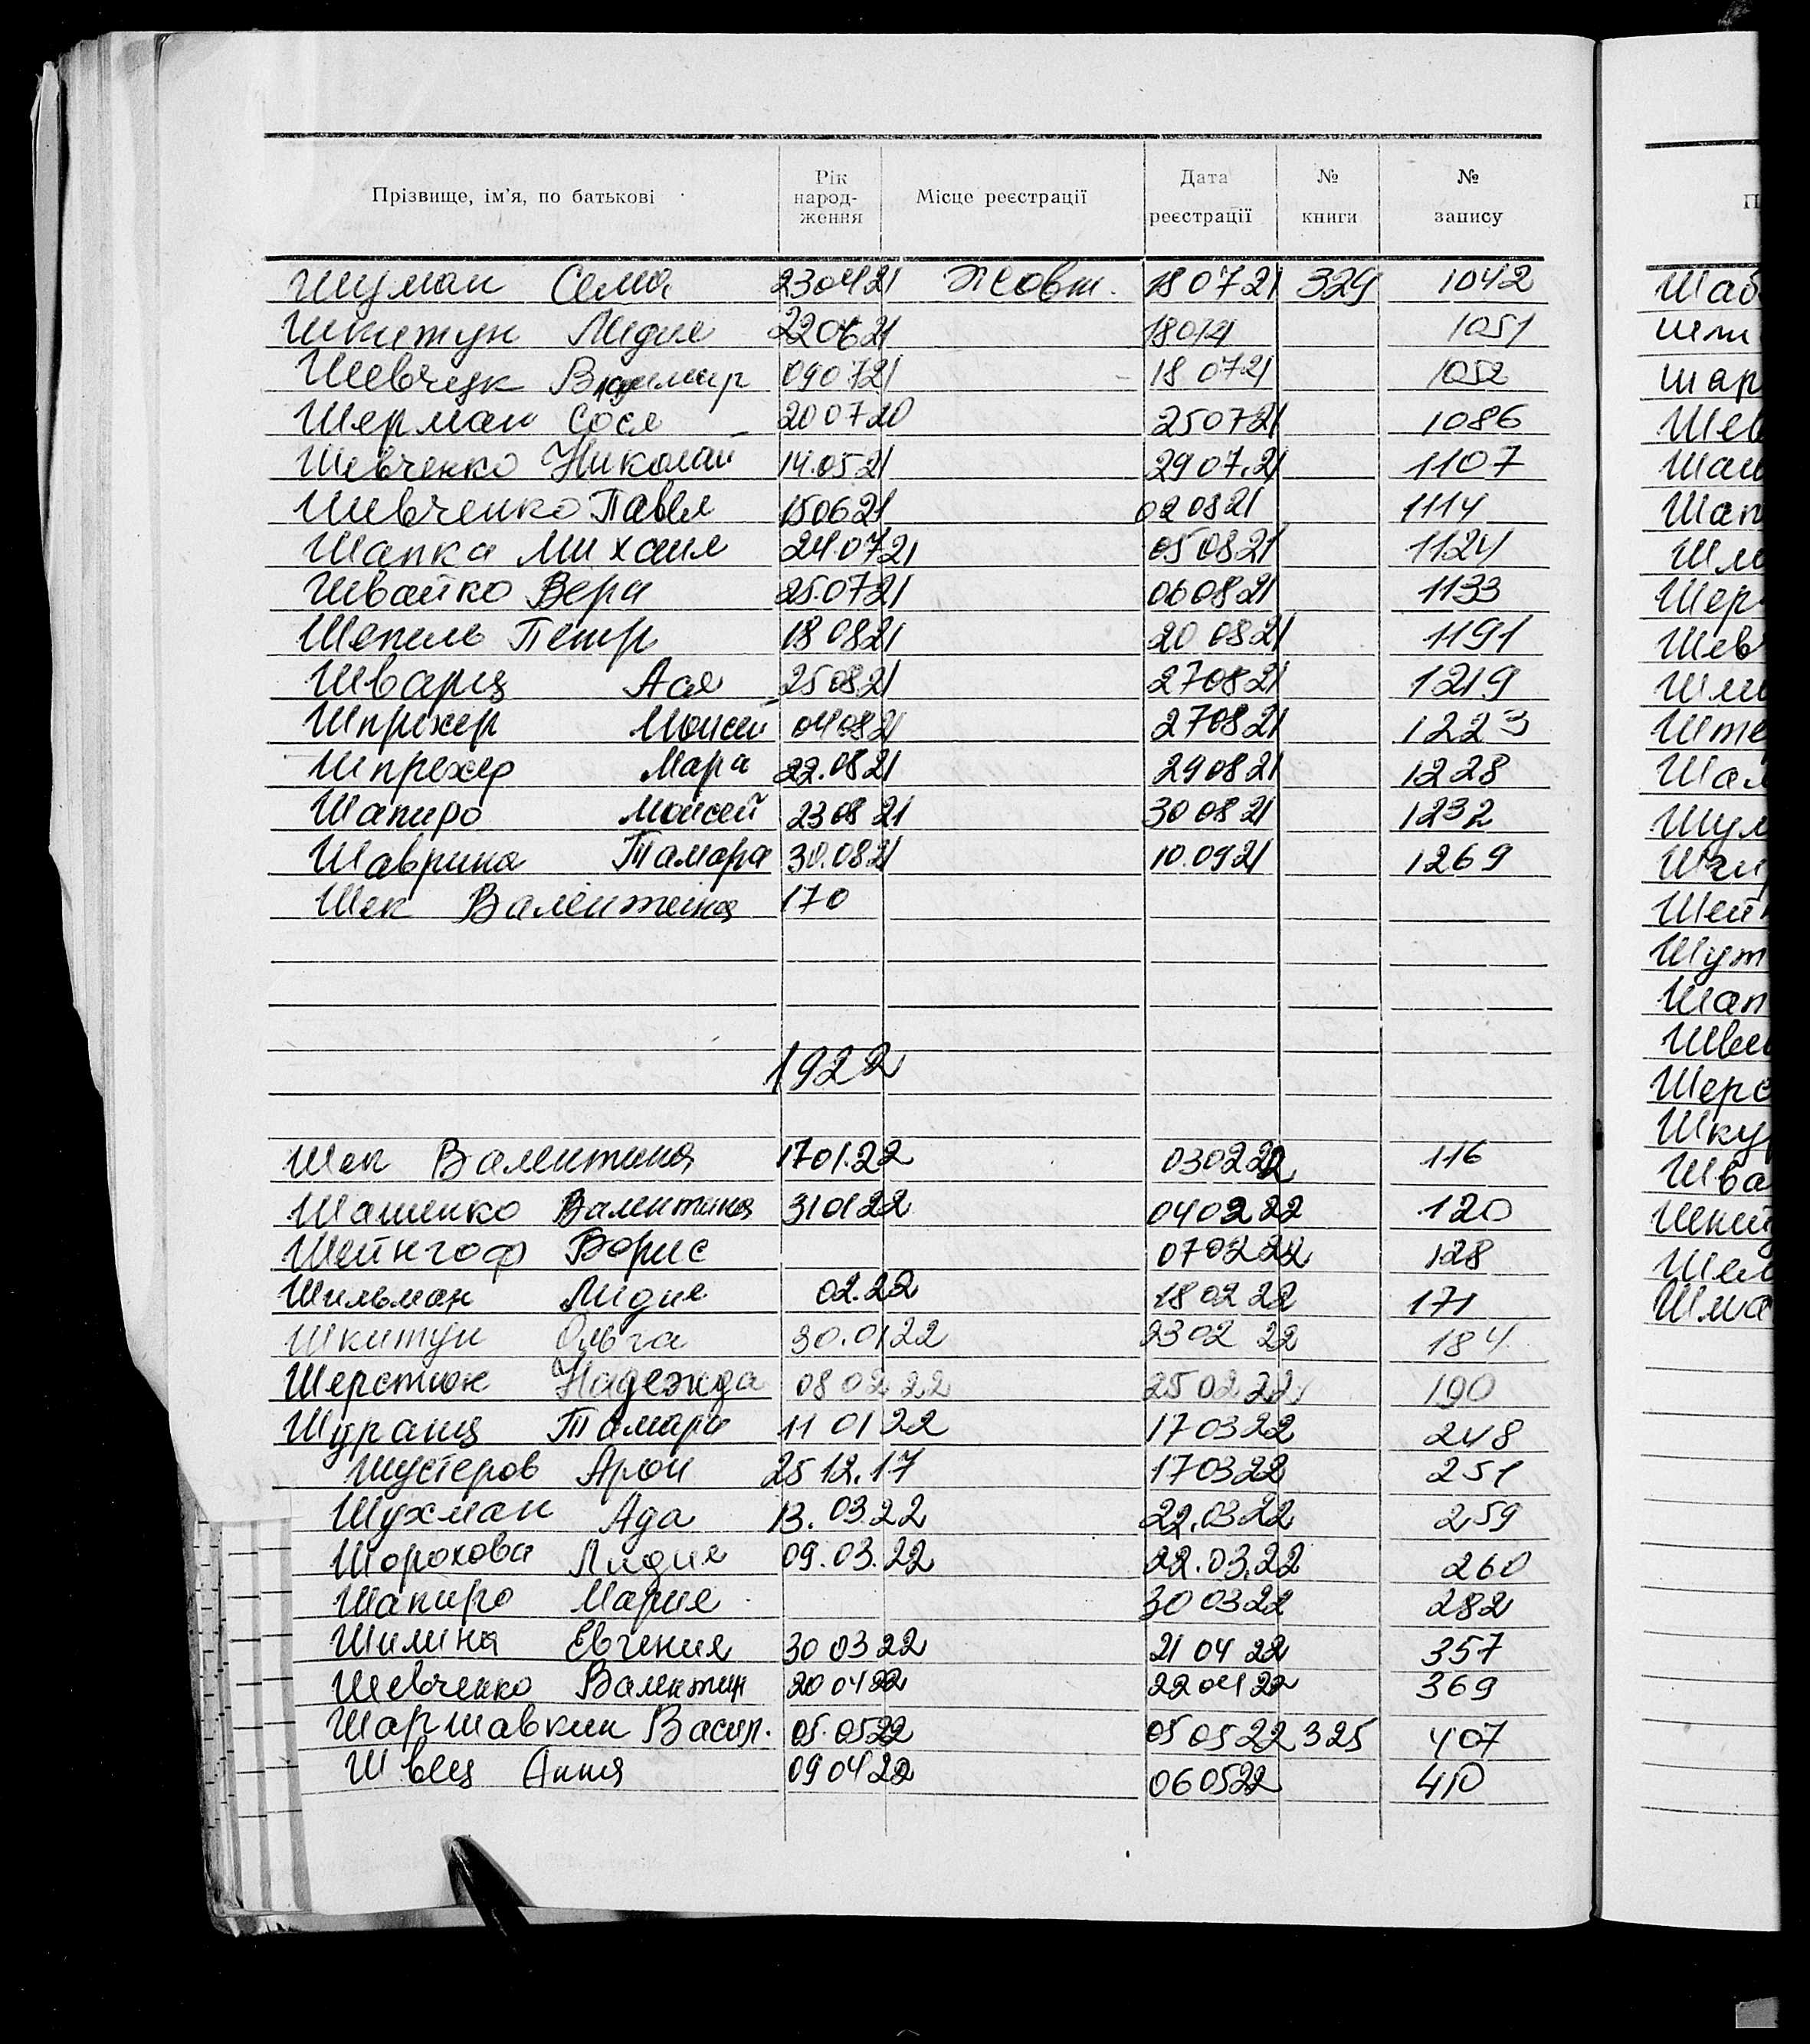 Прізвище, ім'я, по батькові Рік народ-ження Місце реєстрації Дата реєстрації № книги № запису
Шуман Сема 230421 Жовт. 180721 329 1042
Шкитун Лидия 220621 1051
Шевчук Владимир 090721 180721 1052
Шерман Сося 200720 250721 1086
Шевченко Николай 14.0521 2907.21 1107
Шевченко Павел 150621 020821 1114
Шапка Михаил 24.0721 050821 1124
Швайко Вера 25.0721 060821 1133
Шепель Петр 180821 200821 1191
Шварц Ася 250821 270821 1219
Шпрехер Моисей 040821 270821 1223
Шпрехер Мара 22.0821 290821 1228
Шапиро Моисей 230821 300821 1232
Шаврина Тамара 30.0821 10.0921 1269
Шек Валентина 170
1922
Шек Валентина 1701.22 030222 116
Шашенко Валентина 310122 040222 120
Шейнгоф Борис 070222 128
Шильман Лидия 02.22 180222 171
Шкитун Ольга 30.0122 2302 22 184
Шерстюк Надежда 080222 250222 190
Шуранц Тамара 11 01 22 170322 248
Шустеров Арон 25 12.17 170322 251
Шухман Ада 13.03.22 22.0322 259
Шорохова Лидия 09.03.22 22.03.22 260
Шапиро Мария 300322 282
Шилина Евгения 300322 21 04 22 357
Шевченко Валентин 200422 220422 369
Шаршавкин Васил. 05.0522 050522 325 407
Швец Анна 090422 060522 410
П
Шаб
Шар
Шев
Шап
Шер
Шев
Шул
Шут
Шап
Шку
Шва